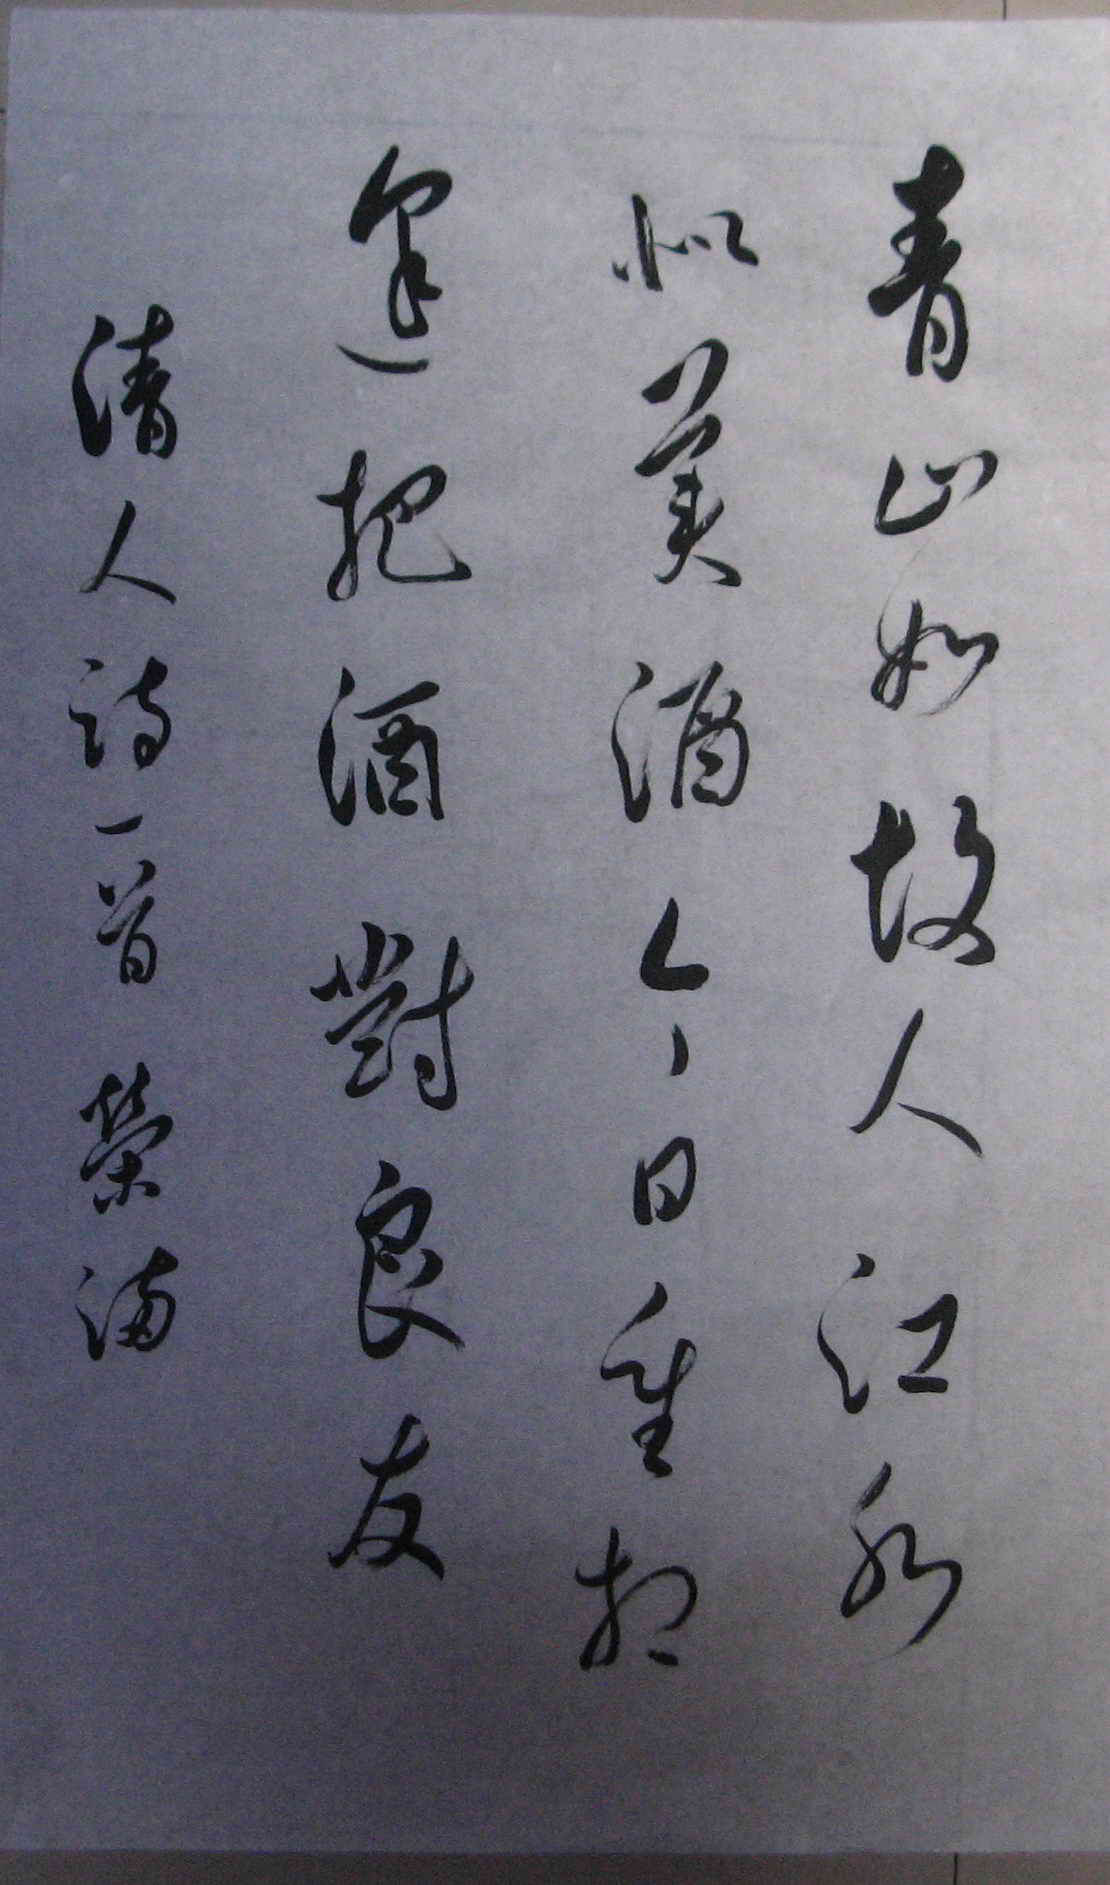 青山如故人江水
似美酒今日重相
逢把酒對良友
清人詩一首 榮